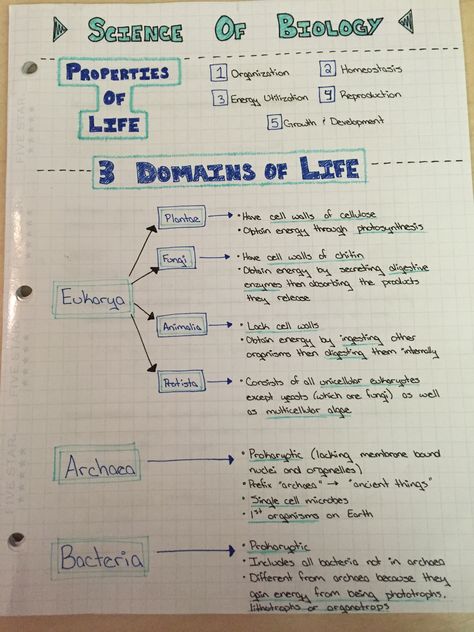 Science Of Biology
Properties
Of
Life
1 Organization
2 Homeostasis
3 Energy Utilization
4 Reproduction
5 Growth & Development
3 Domains of Life
Eukarya
Plantae
• Have cell walls of cellulose
• Obtain energy through photosynthesis
Fungi
• Have cell walls of chitin
• Obtain energy by secreting digestive
enzymes then absorbing the products
they release
Animalia
• Lack cell walls
• Obtain energy by ingesting other
organisms then digesting them internally
Protista
• Consists of all unicellular eukaryotes
except yeasts (which are fungi) as well
as multicellular algae
Archaea
• Prokaryotic (lacking membrane bound
nuclei and organelles)
• Prefix "archaea" → "ancient things"
• Single cell microbes
• 1st organisms on Earth
Bacteria
• Prokaryotic
• Includes all bacteria not in archaea
• Different from archaea because they
gain energy from being phototrophs,
lithotrophs or organotrops
FIVE STAR
FIVE STAR
FIVE STAR